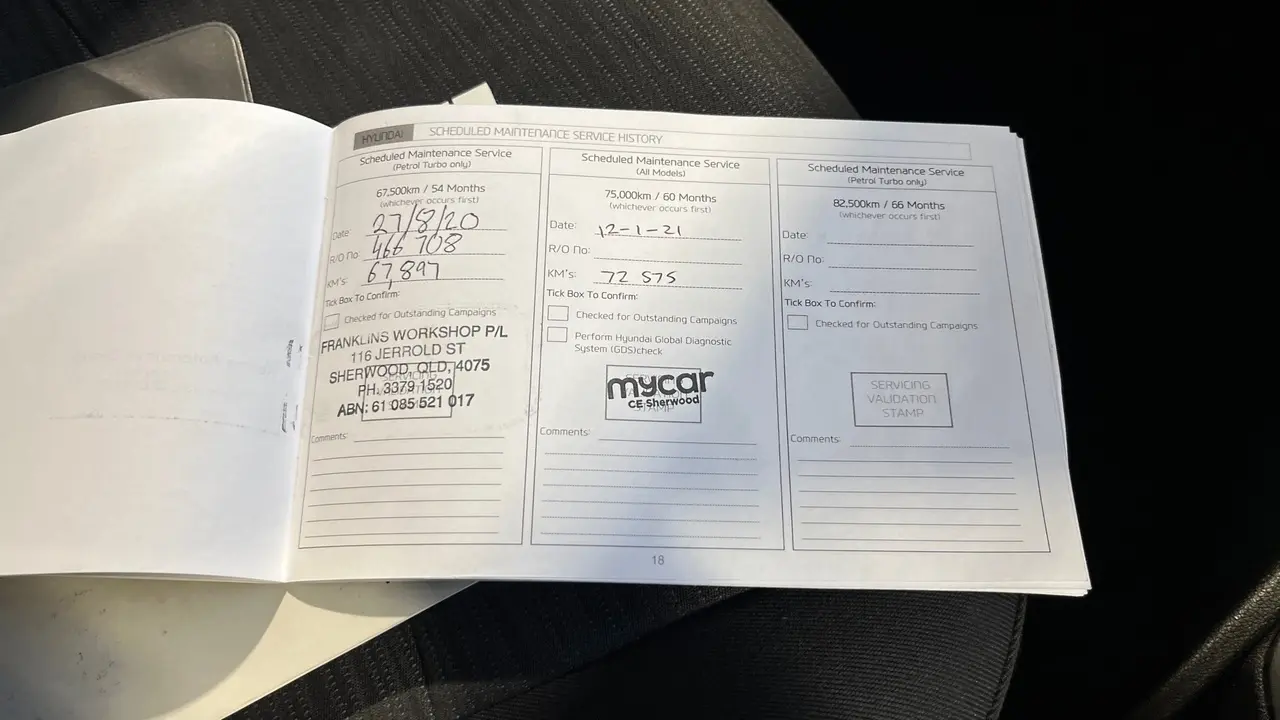 HYUNDAI
SCHEDULED MAINTENANCE SERVICE HISTORY
Scheduled Maintenance Service
(Petrol Turbo only)
67,500km / 54 Months
(whichever occurs first)
Date: 27/8/20
R/O No: 466 708
KM's: 67,897
Tick Box To Confirm:
Checked for Outstanding Campaigns
FRANKLINS WORKSHOP P/L
116 JERROLD ST
SHERWOOD, QLD, 4075
PH. 3379 1520
ABN: 61 085 521 017
Comments:
Scheduled Maintenance Service
(All Models)
75,000km / 60 Months
(whichever occurs first)
Date: 12-1-21
R/O No:
KM's: 72 575
Tick Box To Confirm:
Checked for Outstanding Campaigns
Perform Hyundai Global Diagnostic
System (GDS)check
mycar
CE Sherwood
STAMP
Comments:
Scheduled Maintenance Service
(Petrol Turbo only)
82,500km / 66 Months
(whichever occurs first)
Date:
R/O No:
KM's:
Tick Box To Confirm:
Checked for Outstanding Campaigns
SERVICING
VALIDATION
STAMP
Comments:
18